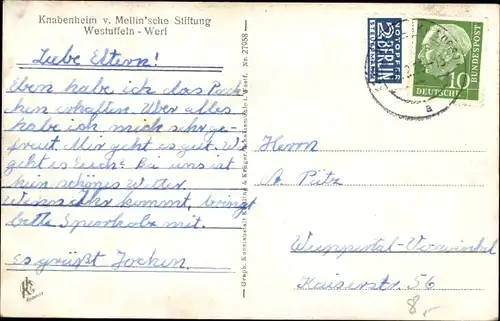 Knabenheim v. Mellin'sche Stiftung
Westuffeln - Werl
Liebe Eltern!
Eben habe ich das Päck-
chen erhalten. Über alles
habe ich mich sehr ge-
freut. Mir geht es gut. Wie
geht es Euch? Bei uns ist
kein schönes Wetter.
Wenn Ihr kommt, bringt
bitte Sperrholz mit.
Es grüßt Jochen.
Nr. 27058
Graph. Kunstanstalt Kettling & Krüger, Schalksmühle i. Westf.
NOTOPFER
2 BERLIN
STEUERMARKE
DEUTSCHE BUNDESPOST
10
a
Herrn
A. Pütz
Wuppertal-Vohwinkel
Kaiserstr. 56
8,-